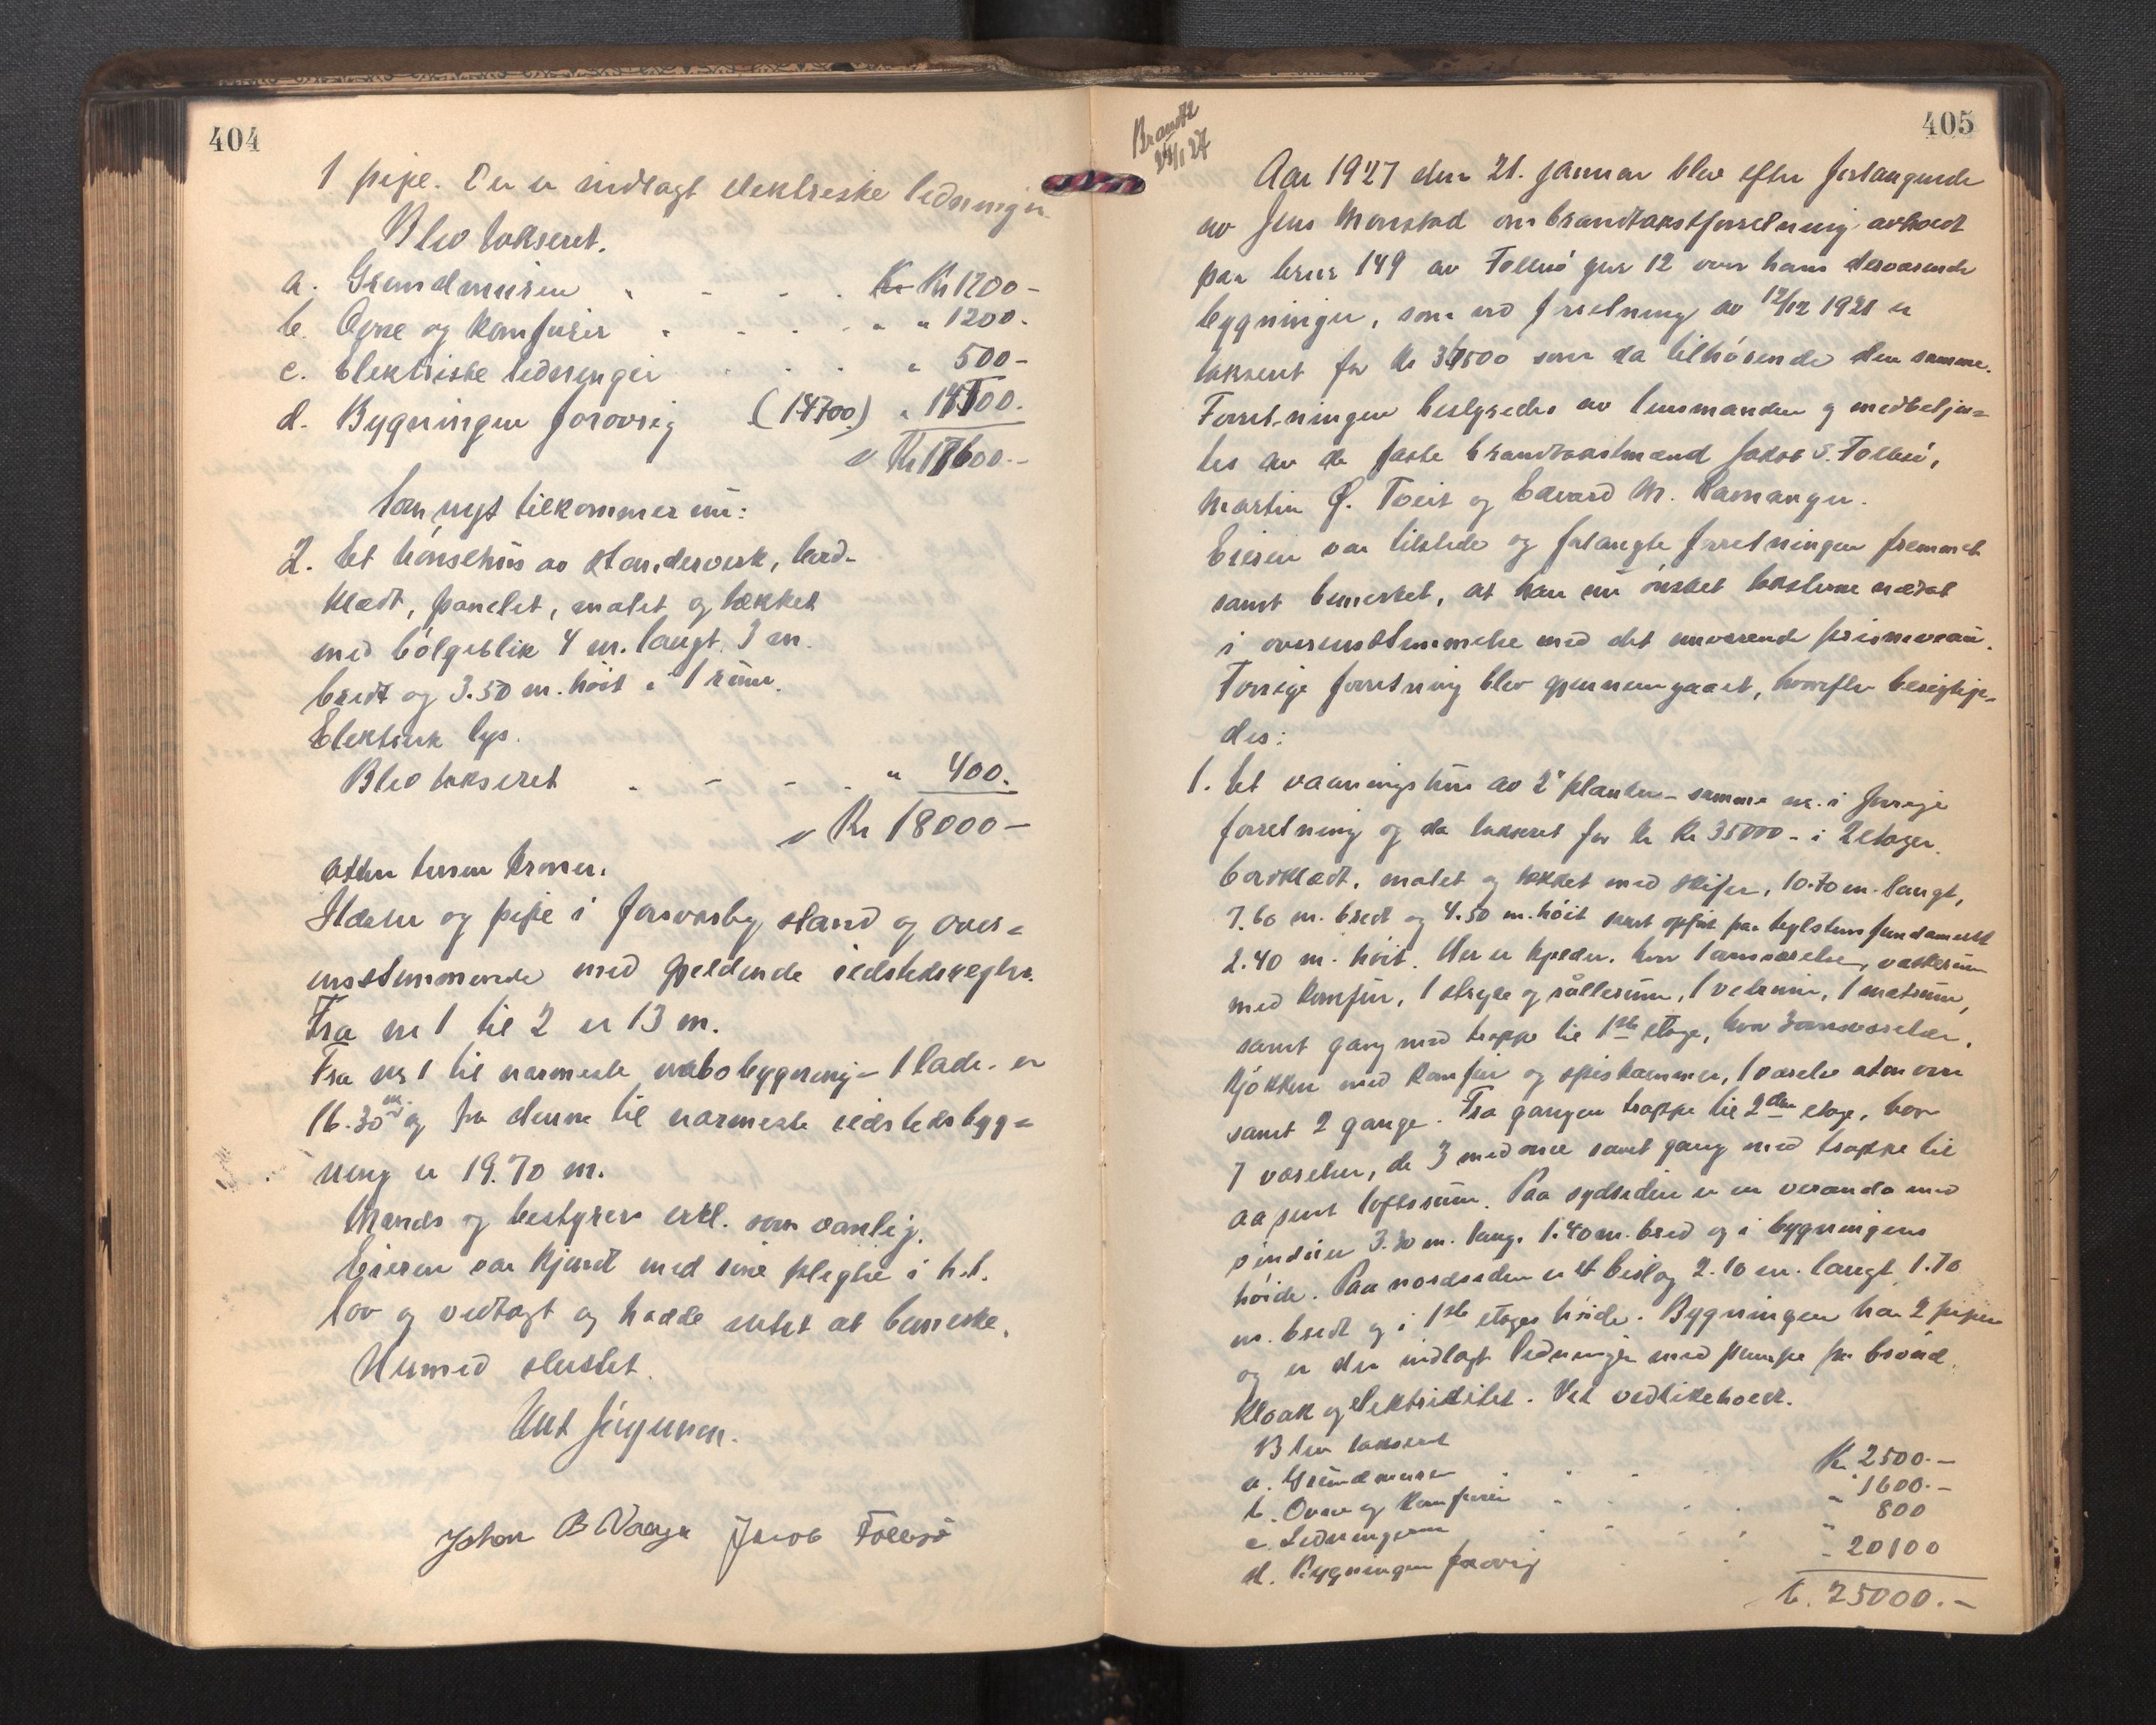 404
1 pipe. Der er indlagt elektriske ledninger
Blev takseret.
a. Grundmuren Kr Kr 1200 -
b. Ovne og komfurer " " 1200.
c. Elektriske ledninger " 500 -
d. Bygningen forøvrig (14700) " 14700.
Kr 17600.-
Som nyt tilkommer nu:
2. Et hønsehus av standerverk, bord-
klædt, panelet, malet og tækket
med bølgeblik 4 m. langt. 3 m.
bredt og 3.50 m. høit i 1 rum.
Elektrisk lys.
Blev takseret " 400.
Kr 18000 -
Atten tusen kroner.
Ildsteder og pipe i forsvarlig stand og over-
ensstemmende med gjeldende ildstedsregler.
Fra nr 1 til 2 er 13 m.
Fra nr 1 til nærmeste nabobygning - 1 lade - er
16.30 m. og fra denne til nærmeste ildstedsbygg-
ning er 19.70 m.
Mænds og bestyrers erkl. som vanlig.
Eieren var kjendt med sine pligter i h.t.
lov og vedtægt og hadde intet at bemerke.
Hermed sluttet.
Johan B Vaage Jacob Follesø
Brandt
24/1 27
405
Aar 1927 den 21. januar blev efter forlangende
av Jens Monstad om brandtakstforretning avholdt
paa brnr 149 av Follesø gnr 12 over hans derværende
bygninger, som ved forretning av 12/12 1921 er
takseret for kr 37500 som da tilhørende den samme.
Forretningen bestyredes av lensmanden og medbetjen-
tes av de faste brandtakstmænd Jakob S. Follesø,
Martin Ø. Tveit og Edvard M. Ramanger.
Eieren var tilstede og forlangte forretningen fremmet
samt bemerket, at han nu ønsket taksterne nedsat
i overensstemmelse med det nuværende prisniveau.
Forrige forretning blev gjennemgaaet, hvorefter besigtige-
des:
1. Et vaaningshus av 2" planker - samme nr. i forrige
forretning og da takseret for kr Kr 35000 - i 2 etager.
bordklædt, malet og tækket med skifer, 10.70 m. langt,
7.60 m. bredt og 4.50 m. høit samt opført paa teglstensfundament
2.40 m. høit. Her er kjelder, hvor 1 anværelse, vaskerum
med komfur, 1 stryke og rullerum, 1 vedrum, 1 matrum,
samt gang med trappe til 1ste etage, hvor 3 anværelser,
kjøkken med komfur og spiskammer, 1 værelse uten ovn
samt 2 gange. Fra gangen trappe til 2den etage, hvor
7 værelser, de 3 med ovne samt gang med trappe til
aapent loftsrum. Paa sydsiden er en veranda med
vinduer 3.30 m. lang, 1.40 m. bred og i bygningens
høide. Paa nordsiden er et bislag 2.10 m. langt 1.70
m. bredt og i 1ste etages høide. Bygningen har 2 piper
og er der indlagt ledninger med pumpe fra brønd,
kloak og elektricitet. Vel vedlikeholdt.
Blev takseret
a. Grundmuren Kr. 2500.-
b. Ovne og komfurer " 1600.-
c. Ledningerne " 800
d. Bygningen forøvrig " 20100
Kr. 25000.-